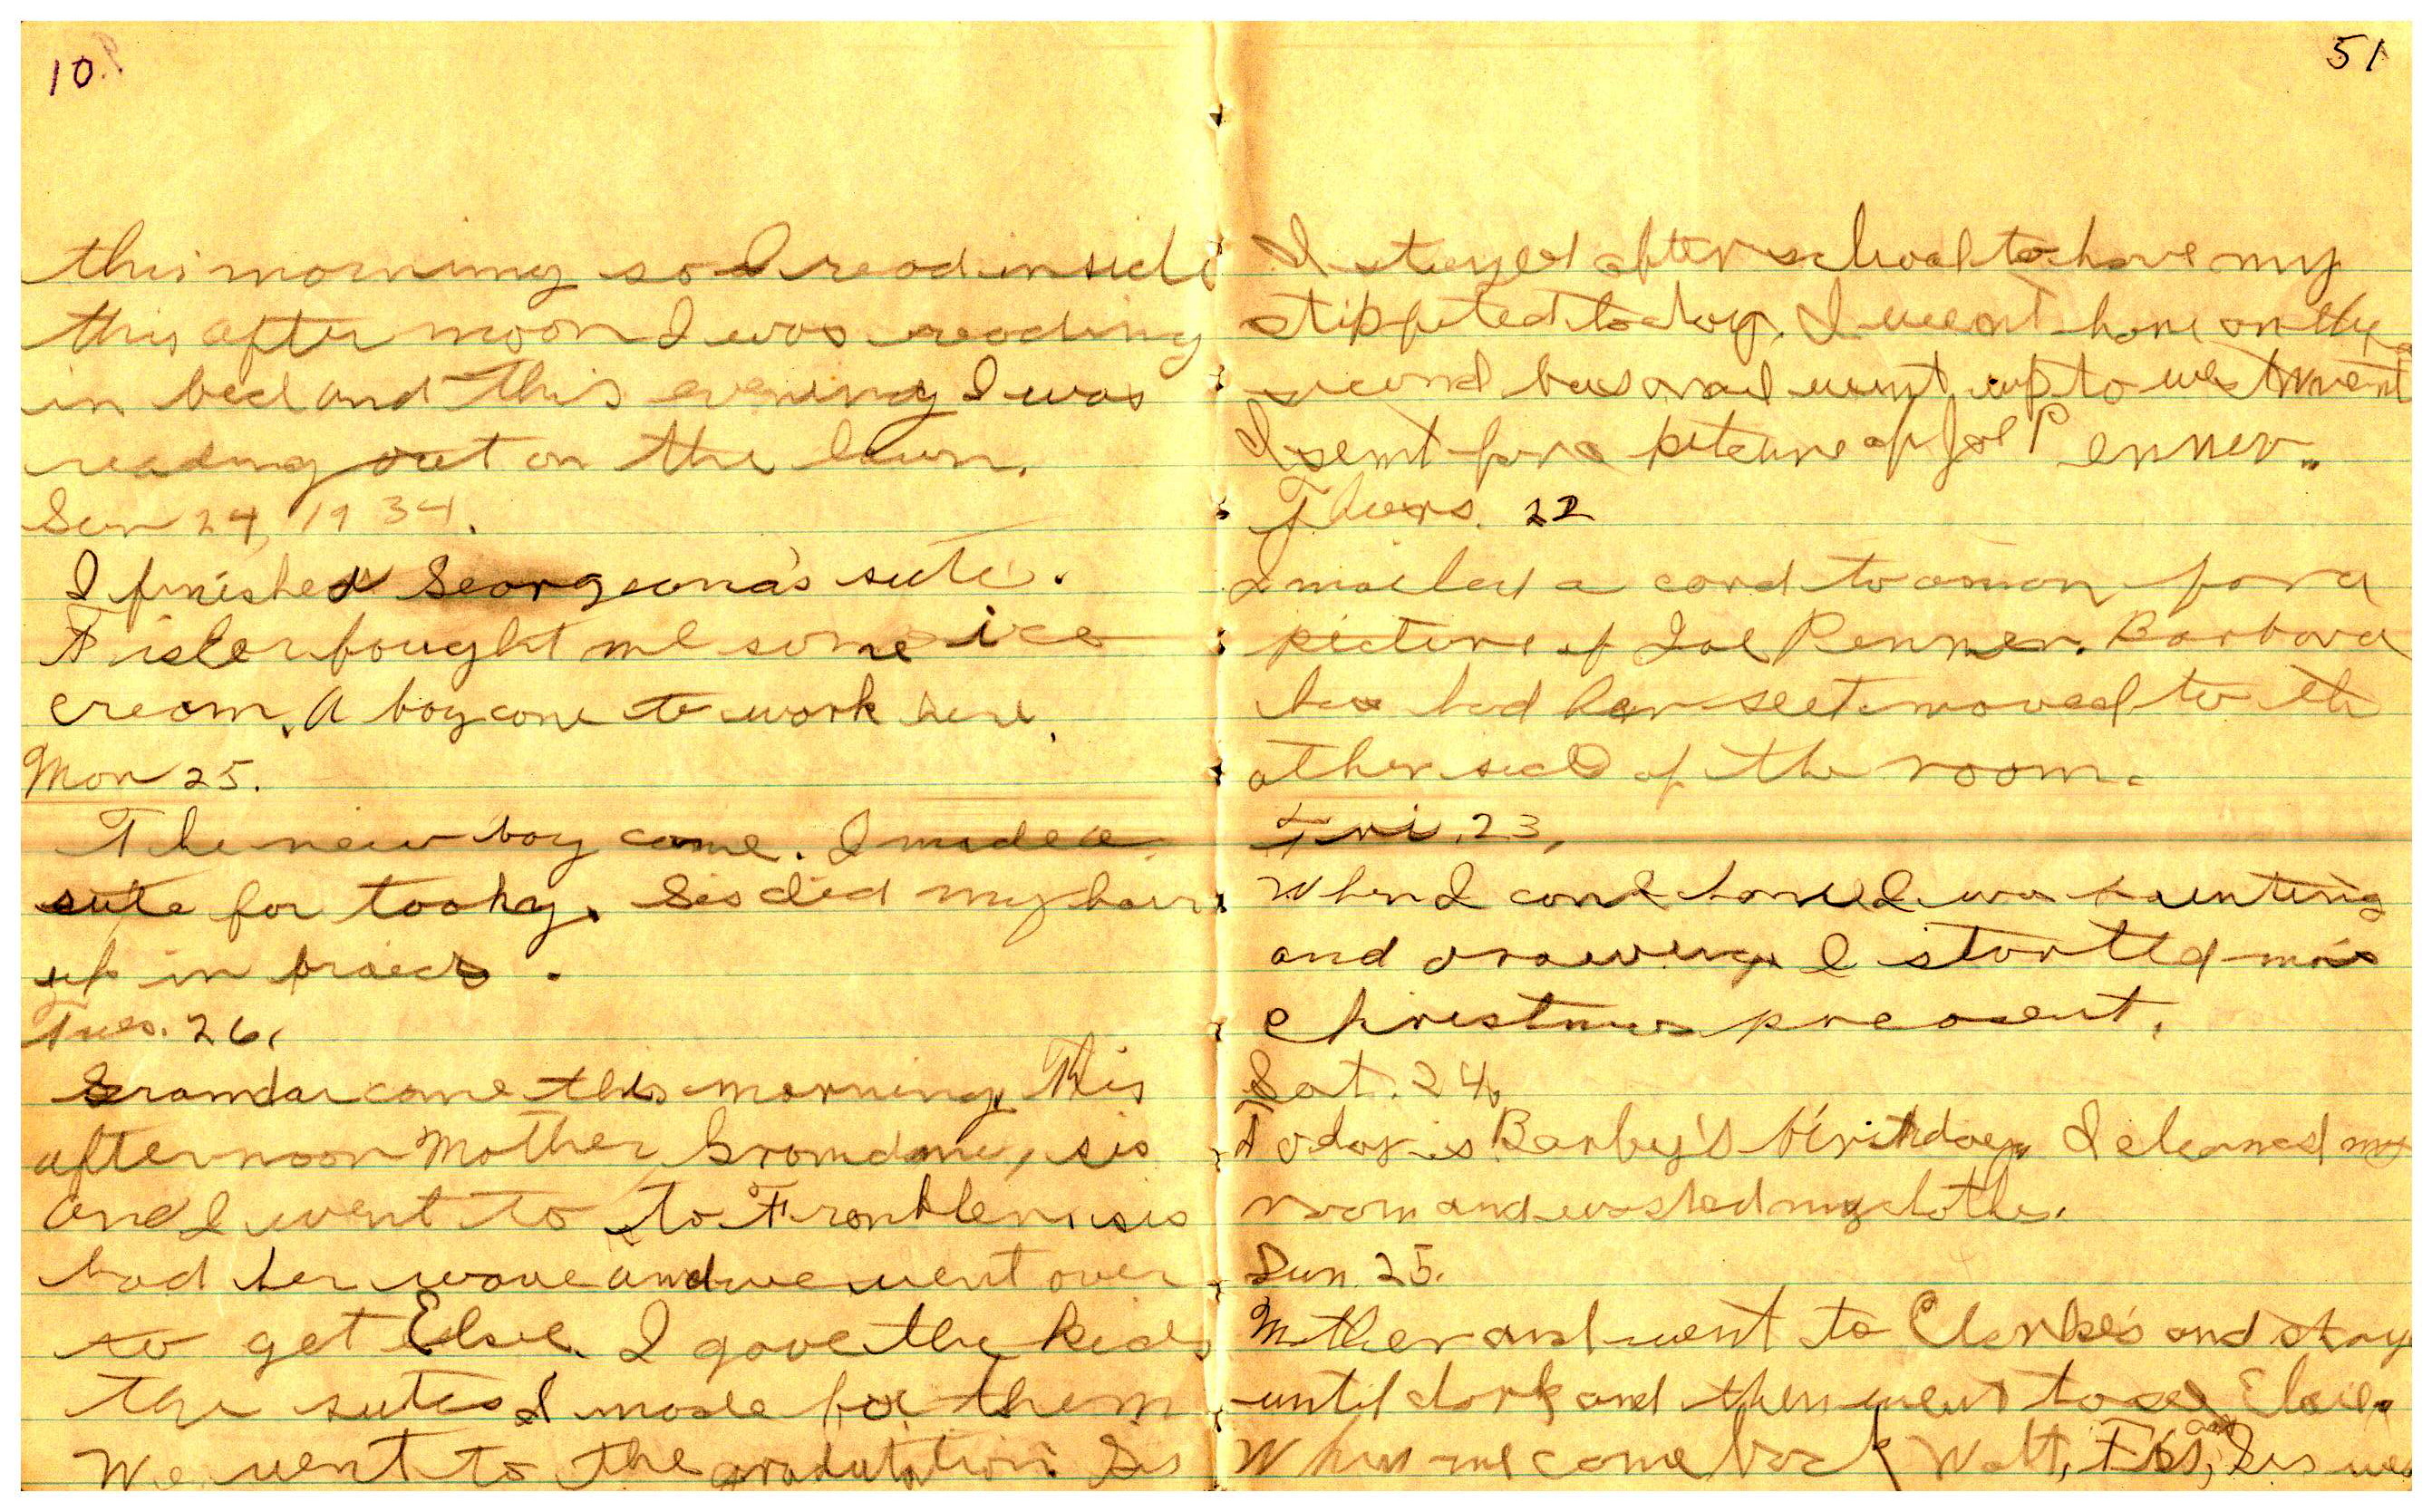 10
this morning so I read inside
this after noon I was reading
in bed and this evening I was
reading out on the lawn.
Sun 24, 1934.
I finished Georgeona's sute.
Fisler bought me some ice
cream. A boy come to work here.
Mon 25.
The new boy come. I made a
sute for tooky. Sis died my hair
up in
Tues. 26.
come this morning. This
afternoon Mother, Gromdma, sis
and I went to to Franklen. sis
had her wave and we went over
to get Elsie. I gave the kids
the sutes I made for them
We went to the gradutation. Sis
51
I stayed after school to have my
today. I went home on the
second bus and went up to westmont
I sent for a picture of Joe Penner.
Thurs. 22
I mailed a card to a man for a
picture of Joe Penner. Barbara
has had her seet moved to th
other side of the room.
Fri. 23,
When I come home I was haunting
and drawing. I started
Christmas preasent.
Sat. 24.
Today is Barby's birthday. I cleaned my
room and washed my clothes.
Sun 25.
Mother and went to Clarke's and stay
until dark and then went to see Elsie.
When we come back Walt, and Sis